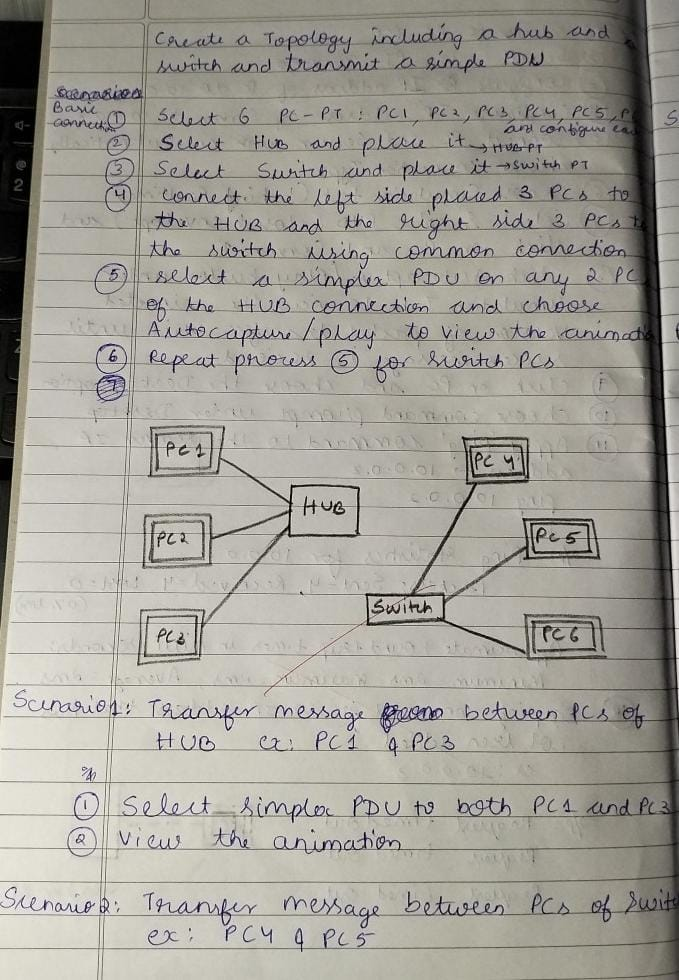 Create a Topology including a hub and
switch and transmit a simple PDU
Basic
connectn ① Select 6 PC-PT : PC1, PC2, PC3, PC4, PC5, P
and configure eac
② Select Hub and place it → HUB PT
③ Select Switch and place it → Switch PT
④ connect the left side placed 3 PCs to
the HUB and the right side 3 PCs t
the switch using common connection
⑤ select a simplex PDU on any 2 PC
of the HUB connection and choose
Autocapture/play to view the animati
⑥ Repeat process ⑤ for switch PCs
PC1
PC 4
HUB
PC2
PC5
Switch
PC3
PC6
Scenario 1: Transfer message between PCs of
HUB ex: PC1 & PC3
① Select simplex PDU to both PC1 and PC3
② View the animation
Scenario 2: Transfer message between PCs of Swit
ex: PC4 & PC5